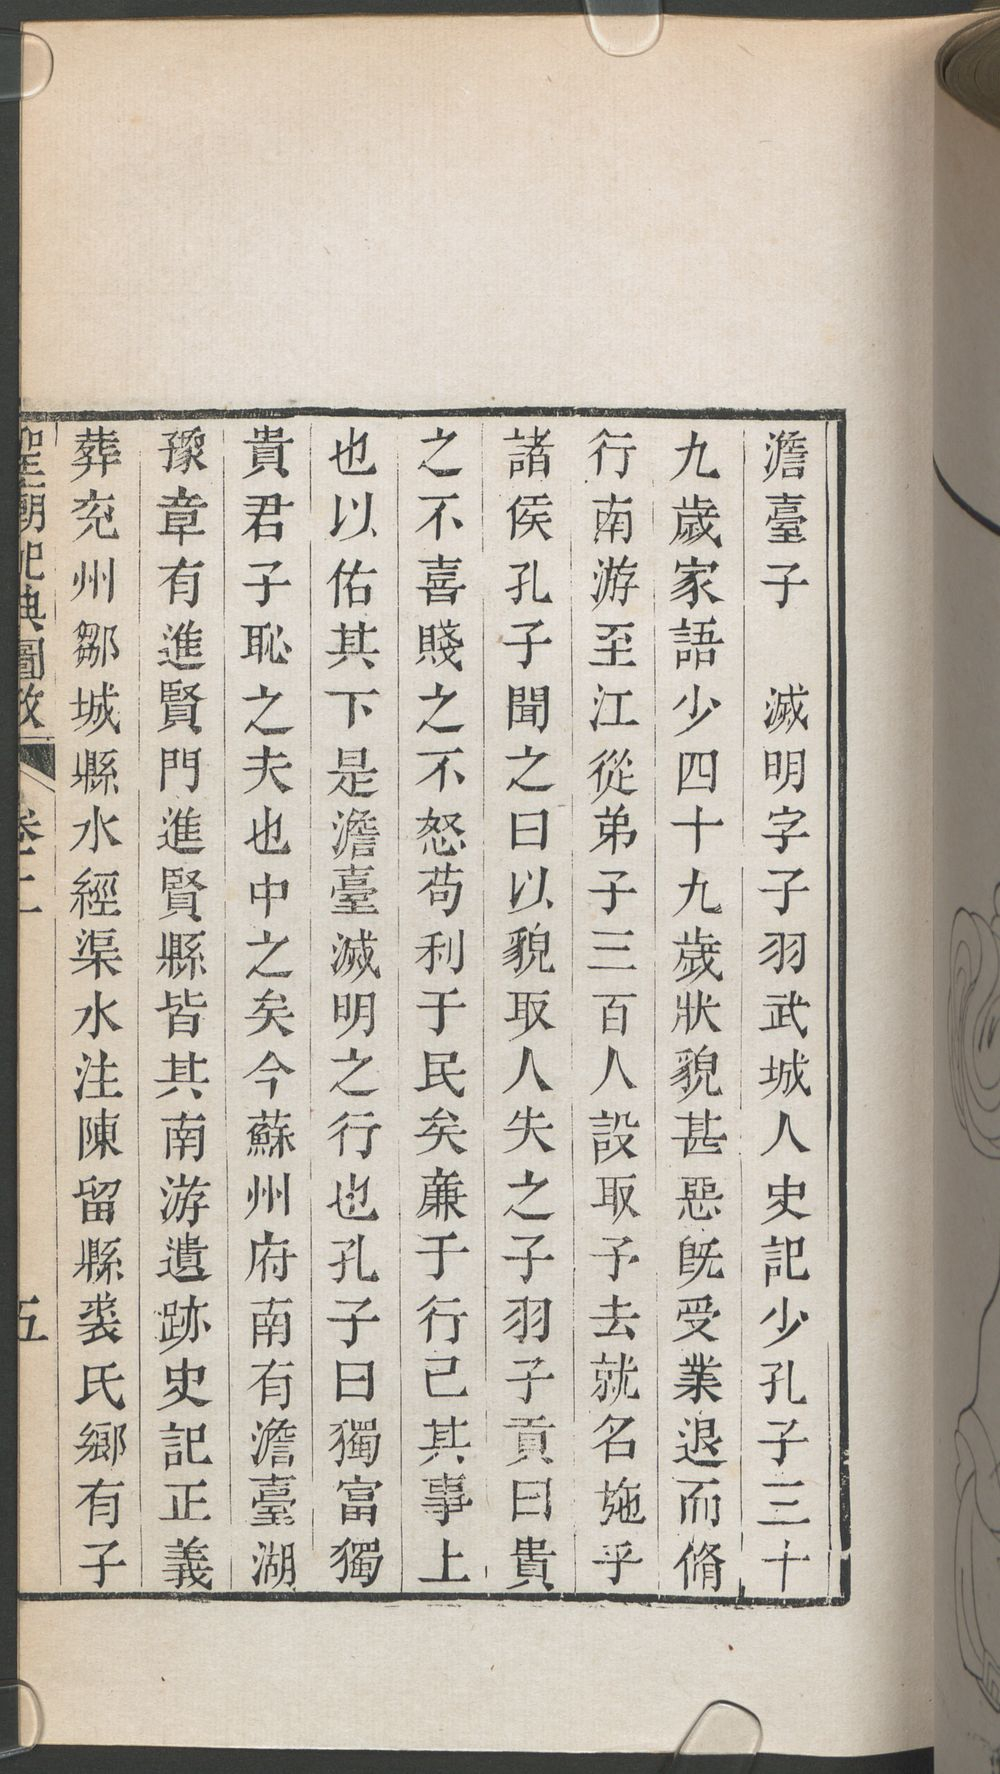 澹臺子　滅明字子羽武城人史記少孔子三十
九歲家語少四十九歲狀貌甚惡旣受業退而脩
行南游至江從弟子三百人設取予去就名施乎
諸侯孔子聞之曰以貌取人失之子羽子貢曰貴
之不喜賤之不怒苟利于民矣廉于行己其事上
也以佑其下是澹臺滅明之行也孔子曰獨富獨
貴君子恥之夫也中之矣今蘇州府南有澹臺湖
豫章有進賢門進賢縣皆其南游遺跡史記正義
葬兖州鄒城縣水經渠水注陳留縣裘氏鄉有子
聖朝祀典圖攷　卷二　五